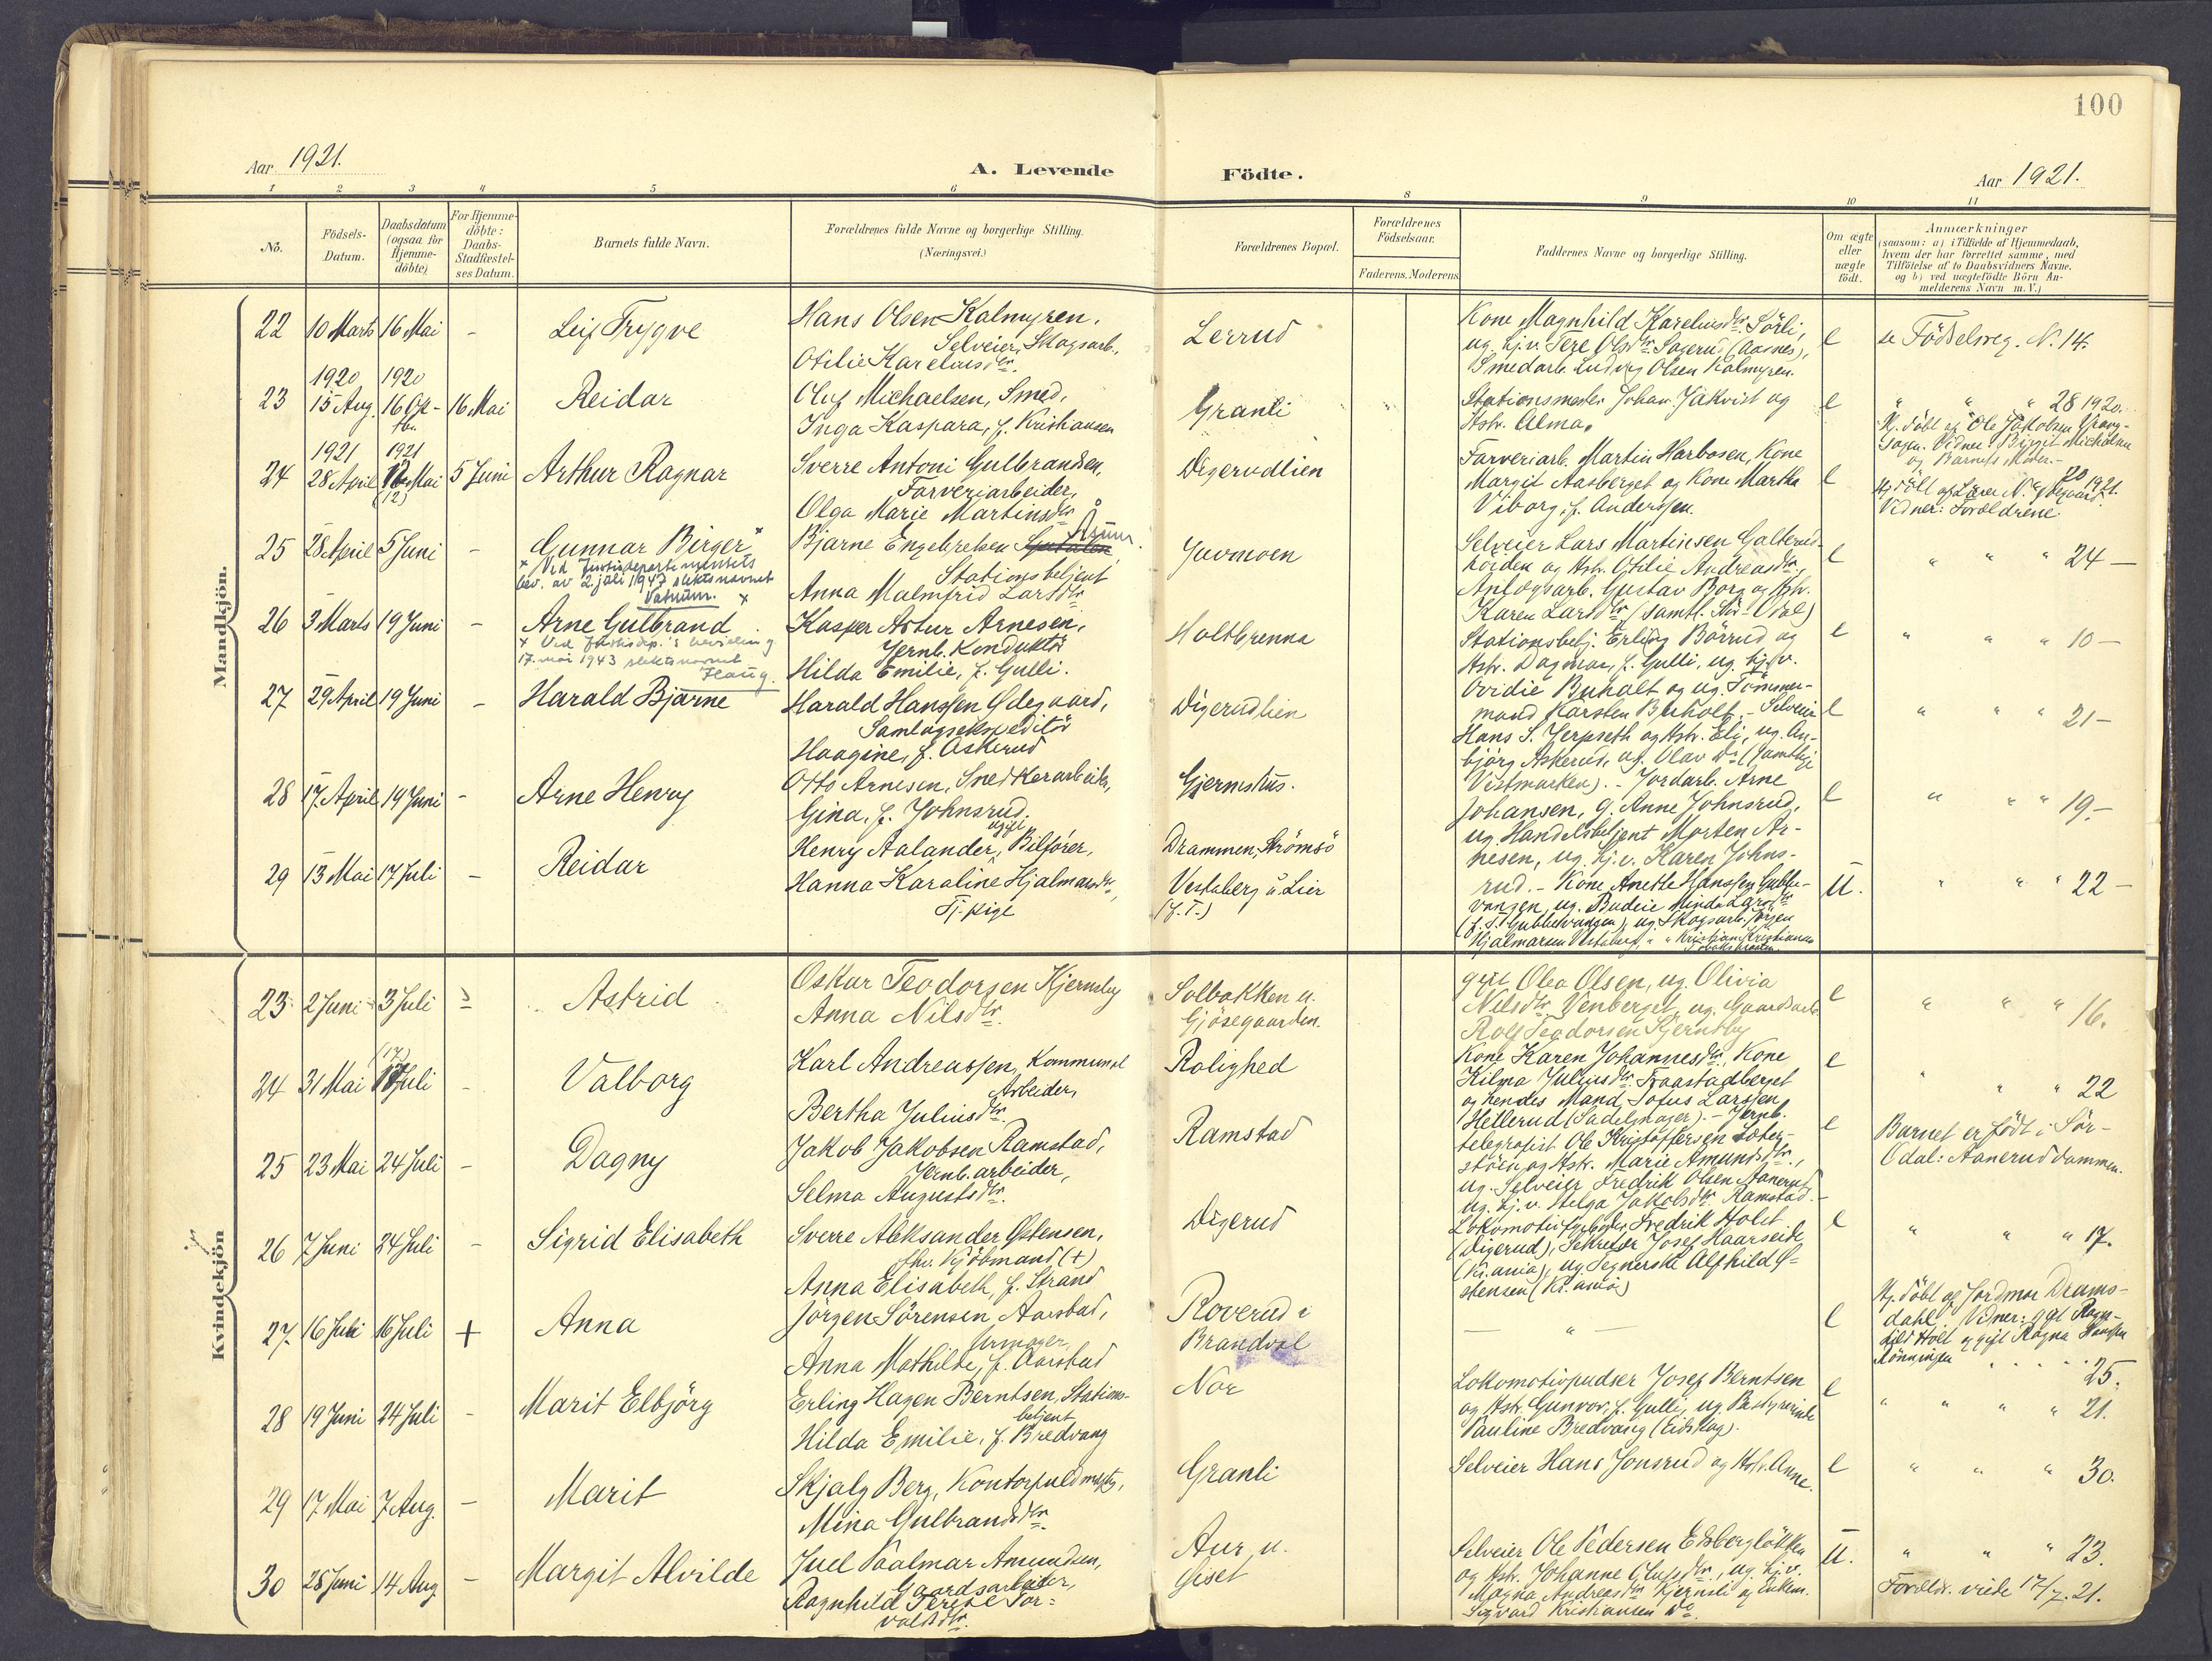 100
Aar 1921.
A. Levende Födte.
Aar 1921.
1 2 3 4 5 6 8 9 10 11
No.
Födsels-
Datum.
Daabsdatum
(ogsaa for
Hjemme-
döbte)
For Hjemme-
döbte:
Daabs-
Stadfæstel-
ses Datum.
Barnets fulde Navn.
Forældrenes fulde Navne og borgerlige Stilling.
(Næringsvei.)
Forældrenes Bopæl.
Forældrenes
Födselsaar.
Faderens. Moderens.
Faddernes Navne og borgerlige Stilling.
Om ægte
eller
uægte
födt.
Anmærkninger
(saasom: a) i Tilfælde af Hjemmedaab,
hvem der har forrettet samme, med
Tilföielse af to Daabsvidners Navne.
og b) ved uægtefödte Börn An-
melderens Navn m.V.)
Mandkjön.
22 10 Marts 16 Mai - Leif Trygve
Hans Olsen Kalmyren,
Selveier, Skogsarb.,
Otilie Kareliusdtr.
Lerrud
Kone Magnhild Kareliusdtr. Sörli,
ug. hj.v. Tere Olsdtr. Sagerud (Aasnes),
Smedarb. Ludvig Olsen Kalmyren.
e
se Födselsreg. N. 14.
1920 1920
23 15 Aug. 16 Ok-
tb.
16 Mai
Reidar
Oluf Michaelsen, Smed,
Inga Kaspara, f. Kristiansen
Granli
Stationsmester Johan Jakvist og
Hstr. Alma.
e
" " " 28 1920.
Hj. döbt af Ole Jakobsen
Vidner: Birgit Michelsen
og Barnets Moder.-
1921 1921
24 28 April 12 Mai
(12)
5 Juni
Arthur Ragnar
Sverre Antoni Gulbrandsen,
Farveriarbeider,
Olga Marie Martinsdtr.
Digerudlien
Farveriarb. Martin Harbosen, Kone
Margit Aasberget og Kone Martha
Viborg, f. Anderssen.
e
20 1921.
Hj. döbt af Lærer N. Ødegaard.
Vidner: Forældrene.
25 28 April 5 Juni - Gunnar Birger x
x Ved Justisdepartementets
bev. av 2. juli 1947 slektsnavnet
Vatnum. x
Bjarne Engebretsen
Stationsbetjent
Anna Malmfrid Larsdtr.
Juvmoen
Selveier Lars Martinsen Galterud-
Kjörden og Hstr. Otilie Andreasdtr.,
Anlægsarb. Gustav Borg og Hstr.
Karen Larsdtr.
e
" " " 24 -
26 3 Marts 19 Juni - Arne Gulbrand
x Ved Justisdep.'s bevilling
17. mai 1943 slektsnavnet
Haug.
Kasper Artur Arnesen,
Jernb. Konduktör
Hilda Emilie, f. Gulli.
Holtbrenna
Stationsbetj. Erling Börrud og
Hstr. Dagmar, f. Gulli, ug. hj.v.
Ovidie Buholt og ug. Tömmer-
mand Karsten Buholt. - Selveier
e
" " " 10 -
27 29 April 19 Juni - Harald Bjarne
Harald Hanssen Ødegaard,
Samlagsekspeditör
Haagine, f. Askerud
Digerudlien
Hans S. Jerpseth og Hstr. Eli, ug. An-
björg Askerud, ug. Olav do (samtlige
Vestmarken). - Jordarb. Arne
e
" " " 21 -
28 17. April 19 Juni - Arne Henry
Otto Arnesen, Snedkerarbeider,
Gina, f. Johnsrud.
Gjermshus.
Johansen, g. Anne Johnsrud,
ug. Handelsbetjent Morten Ar-
nesen, ug. hj.v. Karen Johns-
e
" " " 19. -
29 13 Mai 17 Juli - Reidar
ugift
Henry Aalander, Bilförer,
Hanna Karoline Hjalmarsdtr.,
Tj. pige
Drammen, Strömsö
Vestaberg u. Lier
(f. T.)
rud. - Kone Anette Hanssen Gubbe-
vangen, ug. Budeie Minda Larsdtr.
(f. T. Gubbevangen), ug. Skogsarb. Jörgen
Hjalmarsen Vestaberg, " " Kristian Kristiansen
U.
" " " 22 -
Kvindekjön
23 2 Juni 3 Juli - Astrid
Oskar Teodorsen Kjernsby
Anna Nilsdtr.
Solbakken u.
Gjösegaarden.
gift Olea Olsen, ug. Olivia
Nilsdtr. Venberget, ug. Gaardsarb.
Rolf Teodorsen Kjernsby
e
" " " 16.
(17)
24 31 Mai 17 Juli - Valborg
Karl Andreassen, Kommunal
Arbeider,
Bertha Juliusdtr.
Rolighed
Kone Karen Johannesdtr., Kone
Hilma Juliusdtr. Fraastadberget
og hendes Mand Sofus Larssen
Hellerud (Sadelmager). - Jernb.
e
" " " 22
25 23 Mai 24 Juli - Dagny
Jakob Jakobsen Ramstad,
Jernb. arbeider,
Selma Augustsdtr.
Ramstad
telegrafist Ole Kristoffersen Sæter-
stöen og Hstr. Marie Amundsdtr.,
ug. Selveier Fredrik Olsen Aanerud,
ug. hj.v. Helga Jakobsdtr. Ramstad. -
e
Barnet er födt i Sör-
Odal: Aaneruddammen.
26 7 Juni 24 Juli - Sigrid Elisabeth
Sverre Aleksander Østensen,
fhv. Kjöbmand (+)
Anna Elisabeth, f. Strand
Digerud
Lokomotivfyrböder Fredrik Holst
(Digerud), Sekretær Josef Haarseide
(Kr.ania), ug. Tegnerske Alfhild Ø-
stensen (Kr.ania)
e
" " " 17.
27. 16 Juli 16 Juli + Anna
Jörgen Sörensen Aarstad,
Urmager,
Anna Mathilde, f. Aarstad
Roverud i
Brandval
- " -
e
Hj. döbt af Jordmor Drams-
dahl. Vidner: gift Ragn-
hild Holt og gift Ragna Hanssen
Rönningen " " " 25.
28 19 Juni 24 Juli - Marit Elbjörg
Erling Hagen Berntsen, Stations-
betjent
Hilda Emilie, f. Bredvang
Nor
Lokomotivpudser Josef Berntsen
og Hstr. Gunvor, f. Gulli, ug. Bestyrerinde
Pauline Bredvang (Eidskog).
e
" " " 21.
29 17 Mai 7 Aug. - Marit
Skjalg Berg, Kontorfuldmægtig,
Mina Gulbrandsdtr.
Granli
Selveier Hans Jonsrud og Hstr. Anne.
e
" " " 30.
30 28 Juni 14 Aug - Margit Alvilde
Juel Hjalmar Amundsen,
Gaardsarbeider,
Ragnhild Terese Tor-
valdsdtr.
Aur u.
Giset
Selveier Ole Pedersen Ebberglökken
og Hstr. Johanne Olufsdtr., ug. hj.v.
Magna Andreasdtr. Kjernsli og Enkem.
Sigvard Kristiansen do.
U.
" " " 23.
Foreldr. viede 17/7. 21.